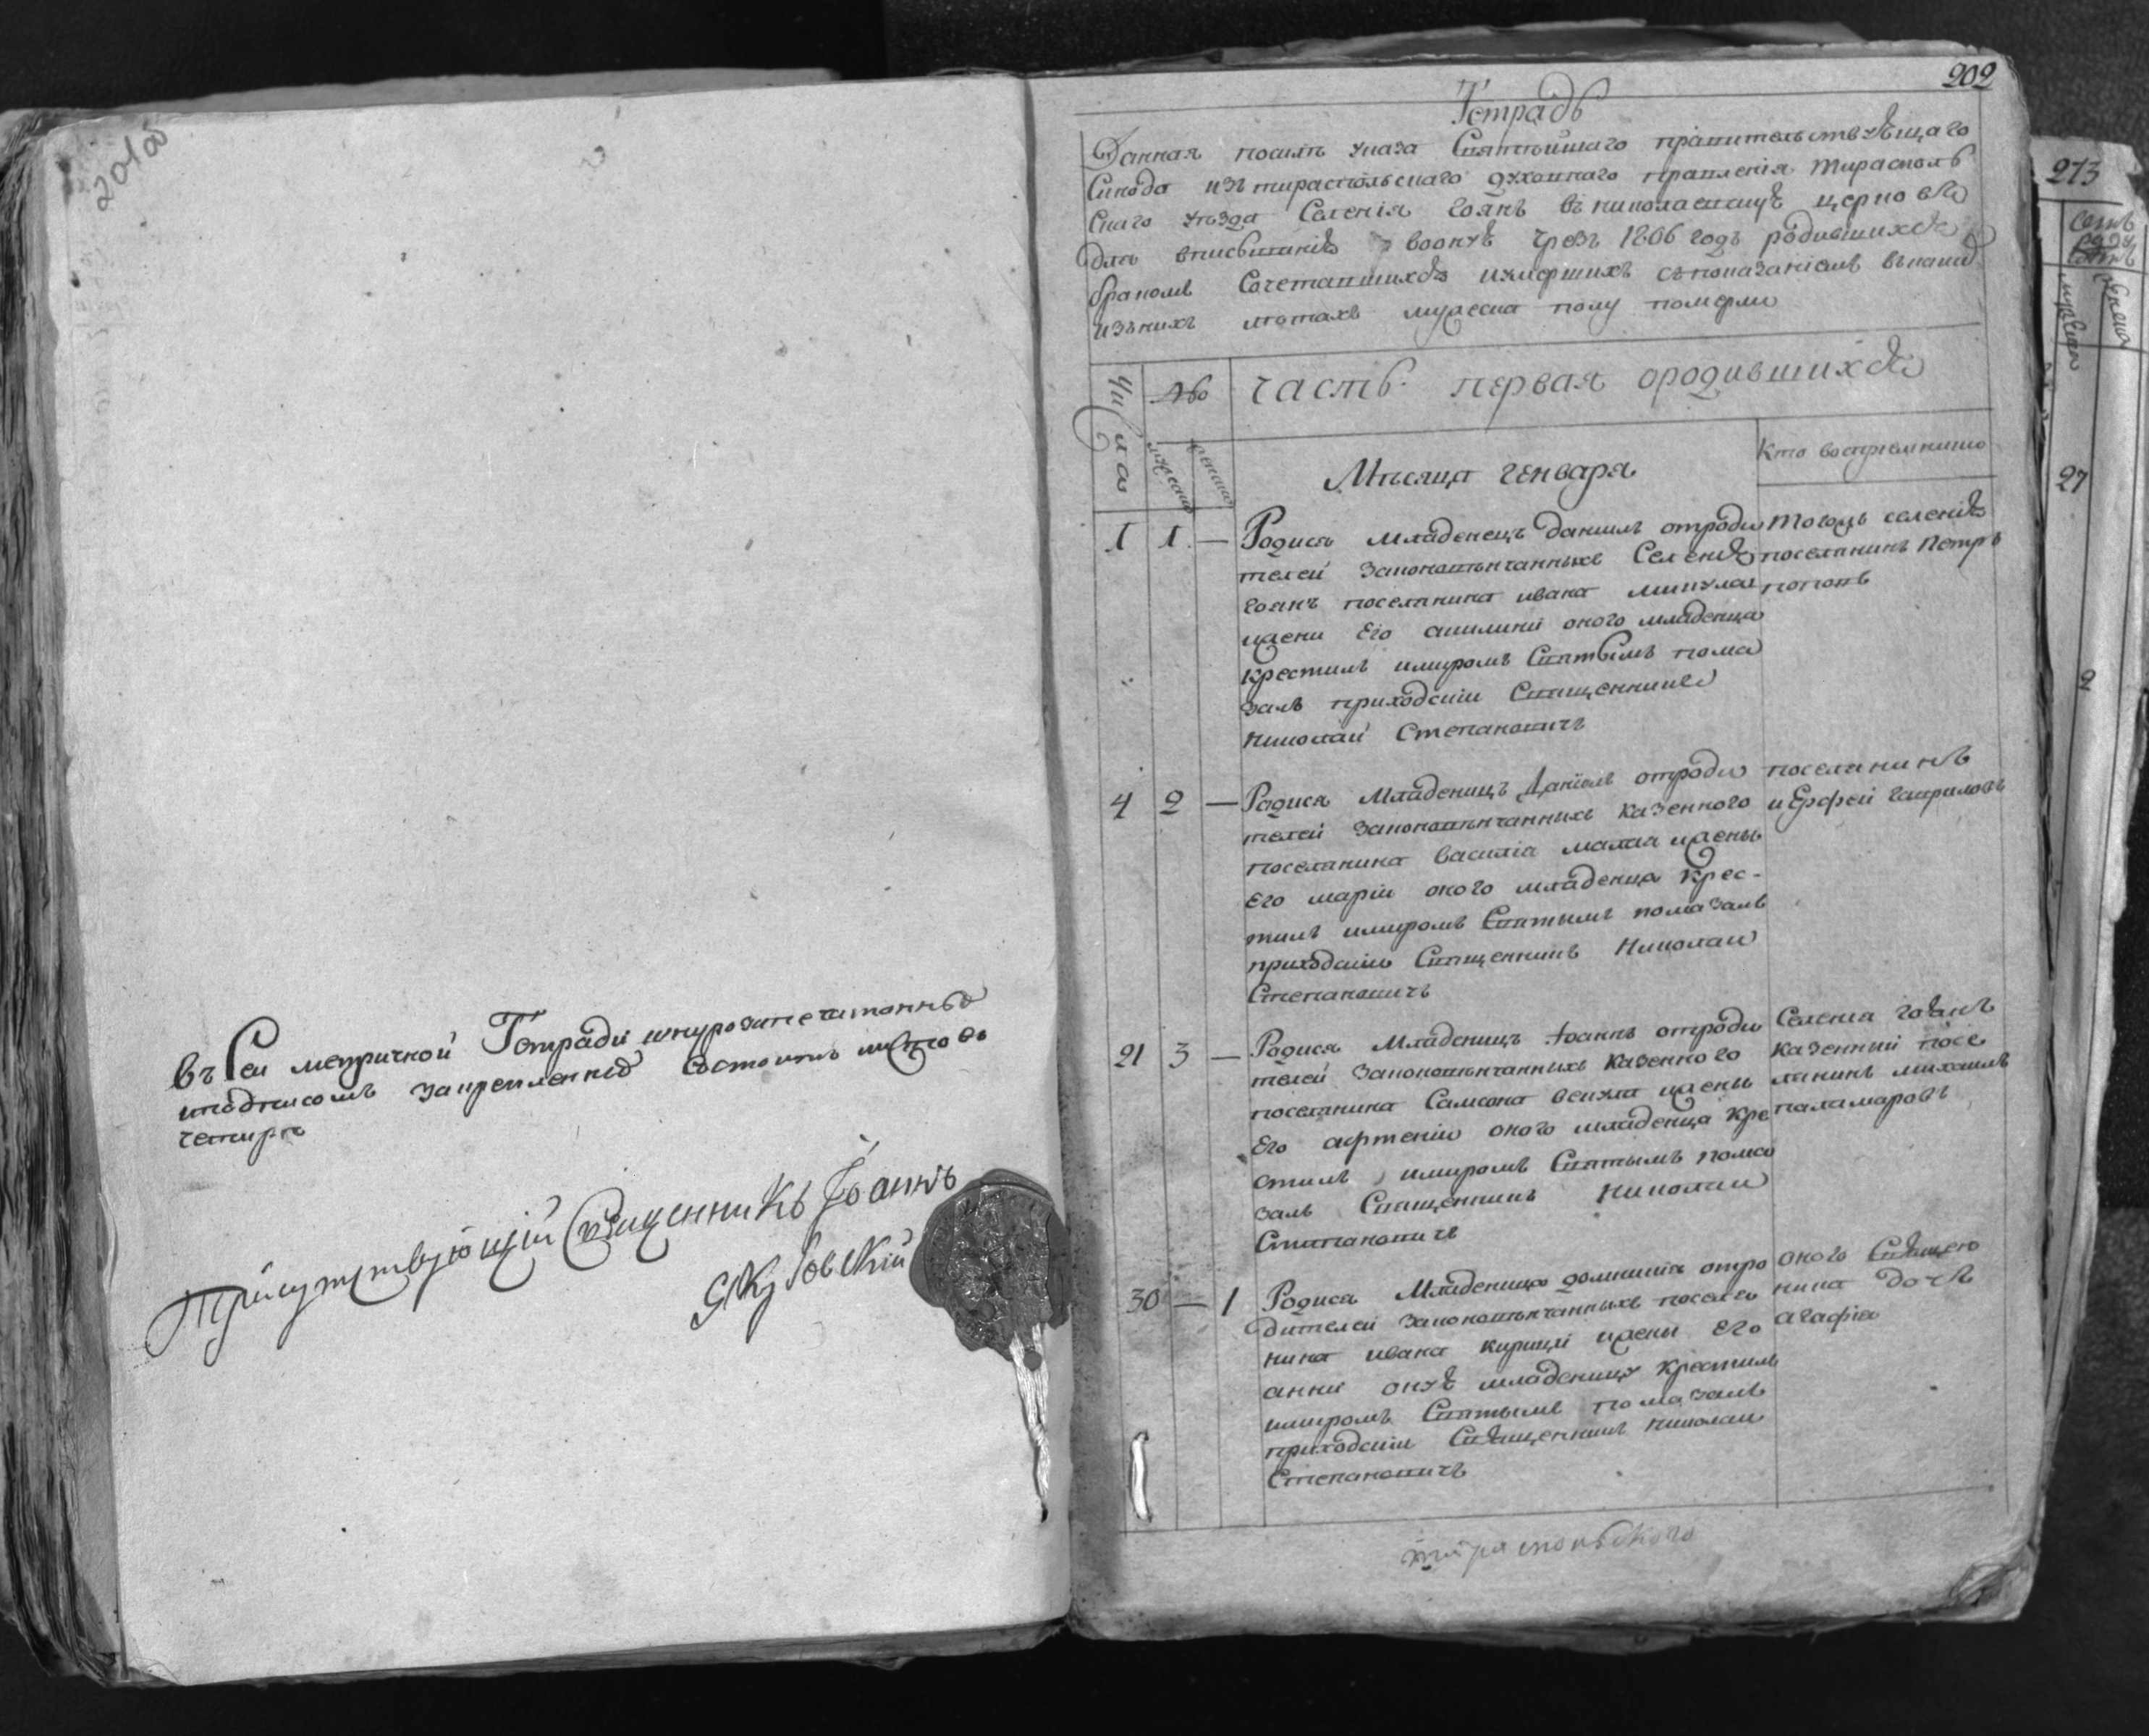 201об
въ Сеи метричной Тетради шнурозапечатанныхъ
иподписомъ закрепленныхъ Состоитъ листовъ
четыри
Присутствующій Священникъ Іоаннъ
Якубовскій
202
Тетрадь
Данная посилѣ указа Святѣйшаго правительствующаго
Синода изъ тираспольскаго духовнаго правленія тирасполь
скаго уѣзда Селенія гоянъ въ николаевскую церковь
для вписыванія воону чрезъ 1806 годъ родившихся
бракомъ Сочетавшихся иумершихъ съпоказаніемъ вькаки
изънихъ лѣтахъ полу померли
Числа
часть первая ородившихся
Мѣсяца генваря
Кто восприемники
мужеска
женска
1 1 — Родися младенецъ данiилъ отроди
телей законовѣнчанныхъ Селенія
гоянъ поселянина ивана микула
жени Его акилини оного младенца
крестилъ имиромъ Святымъ пома
залъ приходскiи Священникъ
Николай Степановичъ
тогожъ селенія
поселянинъ Петръ
поповъ
4 2 — Родися Младеницъ Данiилъ отроди
телей законовѣнчанныхъ казенного
поселянина василiа малая жены
Его марiи оного младенца Крес-
тилъ имиромъ Святымъ помазалъ
приходскiи Священникъ Николаи
Степановичъ
поселянинъ
иЕрофеи гавриловъ
21 3 — Родися Младеницъ Іоаннъ отроди
телей законовѣнчанныхъ казенного
поселянина Самсона векула жены
Его афтенiи оного младенца Кре
стилъ имиромъ Святымъ пома
залъ Священникъ Николаи
Степановичъ
Селенiа гоянъ
казеннiй посе
лянинъ михаилъ
паламаровъ
30 — 1 Родися Младеница домникiа отро
дителей законовѣнчанныхъ поселя
нина ивана жены Его
анни оную младеницу крестилъ
имиромъ Святымъ помазалъ
приходскiи Священникъ николаи
Степановичъ
оного Священ
ника дочь
агафiа
тираспольского
213
27
2